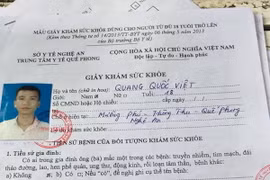 MẪU GIẤY KHÁM SỨC KHỎE DÙNG CHO NGƯỜI TỪ ĐỦ 18 TUỔI TRỞ LÊN
(Kèm theo Thông tư số 14/2013/TT-BYT ngày 06 tháng 5 năm 2013
của Bộ trưởng Bộ Y tế)
SỞ Y TẾ NGHỆ AN
TRUNG TÂM Y TẾ QUẾ PHONG
CỘNG HÒA XÃ HỘI CHỦ NGHĨA VIỆT NAM
Độc lập - Tự do - Hạnh phúc
GIẤY KHÁM SỨC KHỎE
Họ và tên (chữ in hoa): QUANG QUỐC VIỆT
Nữ Tuổi: 18
Số CMND hoặc Hộ chiếu:
Mường Phú - Thông Thụ - Quế Phong
Nghệ An
TIỀN SỬ BỆNH CỦA ĐỐI TƯỢNG KHÁM SỨC KHỎE
1. Tiền sử gia đình:
Có ai trong gia đình ông (bà) mắc một trong các bệnh: truyền nhiễm, tim mạch, đái
tháo đường, lao, hen phế quản, ung thư, động kinh, rối loạn tâm thần, bệnh khác:
a) Không b) Có Nếu "có", đề nghị ghi cụ thể tên bệnh: